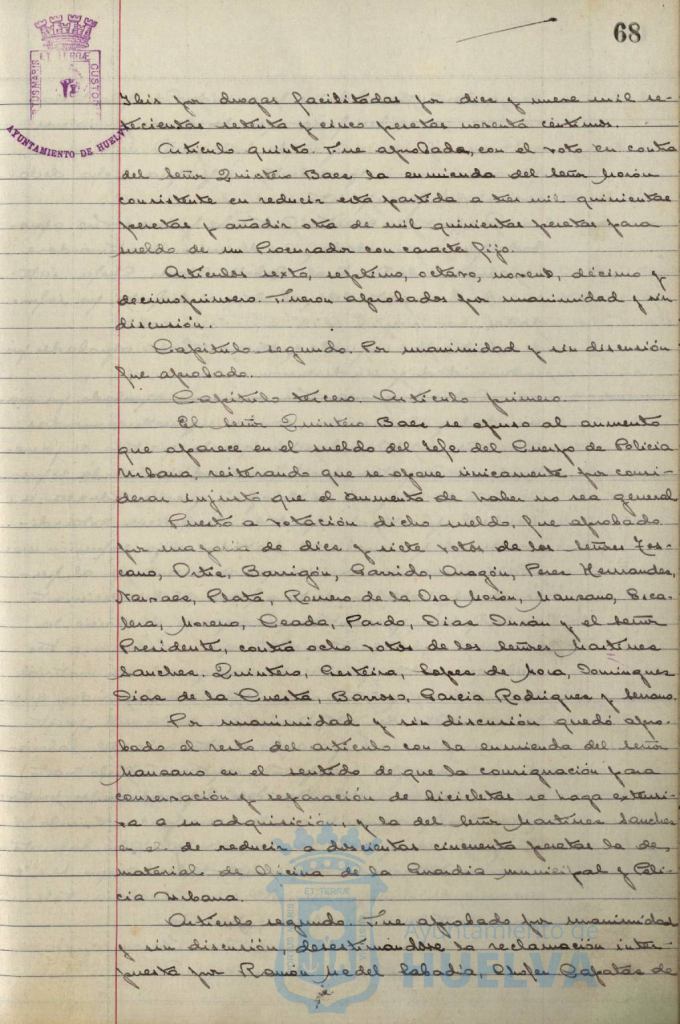 68
ET TERRÆ
CUSTOS
AYUNTAMIENTO DE HUELVA
Ibis por drogas facilitadas por diez y nueve mil se-
tecientas setenta y cinco pesetas noventa céntimos.
Artículo quinto. Fue aprobada, con el voto en contra
del Señor Quintero Baez la enmienda del Señor Morón
consistente en reducir esta partida a tres mil quinientas
pesetas y añadir otra de mil quinientas pesetas para
sueldo de un Procurador con caracter fijo.
Artículos sexto, septimo, octavo, noveno, décimo y
decimoprimero. Fueron aprobados por unanimidad y sin
discusión.
Capítulo segundo. Por unanimidad y sin discusión
fue aprobado.
Capítulo tercero. Artículo primero.
El Señor Quintero Baez se opuso al aumento
que aparece en el sueldo del Jefe del Cuerpo de Policia
Urbana, reiterando que se opone únicamente por consi-
derar injusto que el aumento de haber no sea general
Puesto a votación dicho sueldo, fue aprobado
por mayoria de diez y siete votos de los Señores Tos-
cano, Ortiz, Barrigón, Garrido, Aragón, Perez Hernandez,
Narvaez, Plata, Romero de la Osa, Morón, Manzano, Esca-
lera, Moreno, Ceada, Pardo, Diaz Durán y el Señor
Presidente, contra ocho votos de los Señores Martinez
Sanchez, Quintero, Lopez de Mora, Dominguez
Diaz de la Cuesta, Barroso, Garcia Rodriguez y Serrano.
Por unanimidad y sin discusión quedó apro-
bado el resto del artículo con la enmienda del Señor
Manzano en el sentido de que la consignación para
conservación y reparación de bicicletas se haga extensi-
va a su adquisición, y la del Señor Martinez Sanchez
en el de reducir a doscientas cincuenta pesetas la de
material de Oficina de la Guardia municipal y Poli-
cia Urbana.
Artículo segundo. Fue aprobado por unanimidad
y sin discusión, desestimándose la reclamación inter-
puesta por Ramón Medel Labadia, Chofer Capataz de
Ayuntamiento de
HUELVA